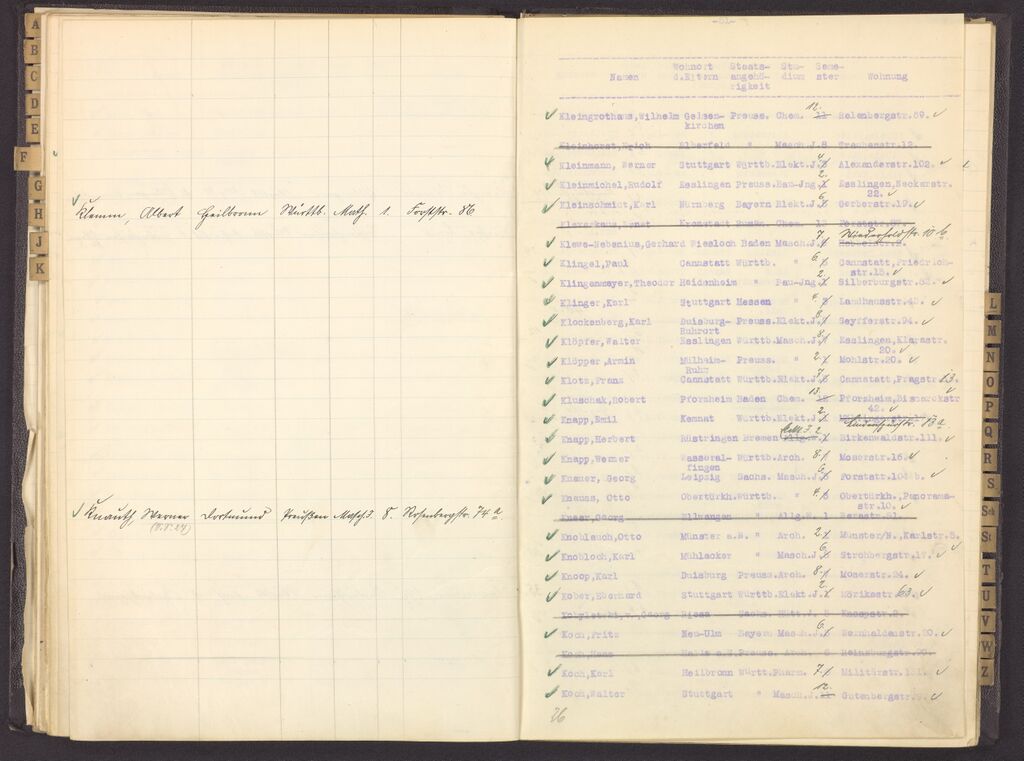 A
B
C
D
E
F
G
H
J
K
Klemm, Albert Heilbronn Württb. Math. 1. Forststr. 86
Knauth, Werner Dortmund Preußen Masch.J. 8. Rosenbergstr. 74 a
-61-
Wohnort Staats- Stu- Seme-
Namen d.Eltern angehö- dium ster Wohnung
rigkeit
12.
Kleingrothaus, Wilhelm Gelsen- Preuss. Chem. 11 Relenbergstr.59.
kirchen
Kleinhorst, Erich Elberfeld " Masch.J.8 Traubenstr.12.
Kleinmann, Werner Stuttgart Württb. Elekt.J. Alexanderstr.102.
Kleinmichel, Rudolf Esslingen Preuss. Bau-Jng. Esslingen, Neckarstr.
22.
Kleinschmidt, Karl Nürnberg Bayern Elekt.J. Gerberstr.19.
Kronstadt Rumän. Chem. 12 Forststr.
Klewe-Nebenius, Gerhard Wiesloch Baden Masch.J. Wiederholdstr. 10 b
Klingel, Paul Cannstatt Württb. " Cannstatt, Friedrich-
str.15.
Klingenmayer, Theodor Heidenheim " Bau-Jng. Silberburgstr.
Klinger, Karl Stuttgart Hessen " Landhausstr.
Klockenberg, Karl Duisburg- Preuss. Elekt.J. Seyfferstr.94.
Ruhrort
Klöpfer, Walter Esslingen Württb. Masch.J. Esslingen, Klarastr.
20.
Klöpper, Armin Mülheim- Preuss. " 2. Mohlstr.20.
Ruhr
Klotz, Franz Cannstatt Württb. Elekt.J. Cannstatt, Pragstr. 13.
13.
Kluschak, Robert Pforzheim Baden Chem. 12 Pforzheim, Bismarckstr
42.
Knapp, Emil Kemnat Württb. Elekt.J. 13 a.
Knapp, Herbert Rüstringen Bremen Birkenwaldstr.111.
Knapp, Werner Wasseral- Württb. Arch. 8. Moserstr.16.
fingen
Knauer, Georg Leipzig Sachs. Masch.J. Forststr.
Knauss, Otto Obertürkh. Württb. " 4. Obertürkh., Panorama-
str.10.
Knaer, Georg Ellwangen " Allg.B. 1
Knoblauch, Otto Münster a.N. " Arch. 2. Münster/N. Karlstr.5.
Knobloch, Karl Mühlacker " Masch.J. Strohbergstr.17.
Knoop, Karl Duisburg Preuss. Arch. 8. Moserstr.24.
Kober, Eberhard Stuttgart Württb. Elekt.J. Mörikestr 63.
Georg Riesa Sachs. Hütt.J. Knospstr.
Koch, Fritz Neu-Ulm Bayern Masch.J. Wernhaldenstr.
Koch, Hans Halle a.S. Preuss. Arch. Reinsburgstr.
Koch, Karl Heilbronn Württ. Pharm. 7. Militärstr.
Koch, Walter Stuttgart " Masch.J. 12. Gutenbergstr.
26
L
M
N
O
P
Q
R
S
Sch
St
T
U
V
W
Z